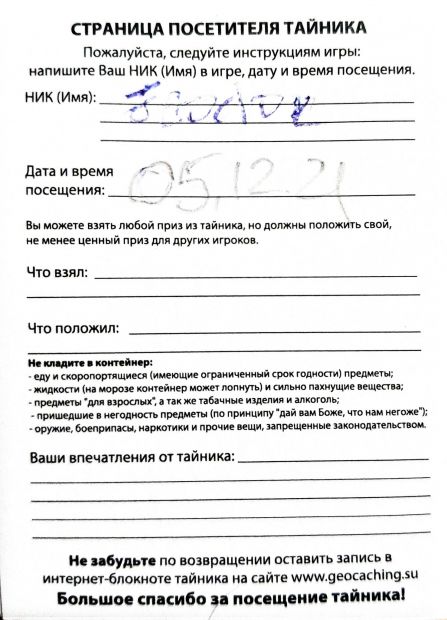 СТРАНИЦА ПОСЕТИТЕЛЯ ТАЙНИКА
Пожалуйста, следуйте инструкциям игры:
напишите Ваш НИК (Имя) в игре, дату и время посещения.
НИК (Имя):
Дата и время
посещения: 05.12.21
Вы можете взять любой приз из тайника, но должны положить свой,
не менее ценный приз для других игроков.
Что взял:
Что положил:
Не кладите в контейнер:
- еду и скоропортящиеся (имеющие ограниченный срок годности) предметы;
- жидкости (на морозе контейнер может лопнуть) и сильно пахнущие вещества;
- предметы "для взрослых", а так же табачные изделия и алкоголь;
- пришедшие в негодность предметы (по принципу "дай вам Боже, что нам негоже");
- оружие, боеприпасы, наркотики и прочие вещи, запрещенные законодательством.
Ваши впечатления от тайника:
Не забудьте по возвращении оставить запись в
интернет-блокноте тайника на сайте www.geocaching.su
Большое спасибо за посещение тайника!